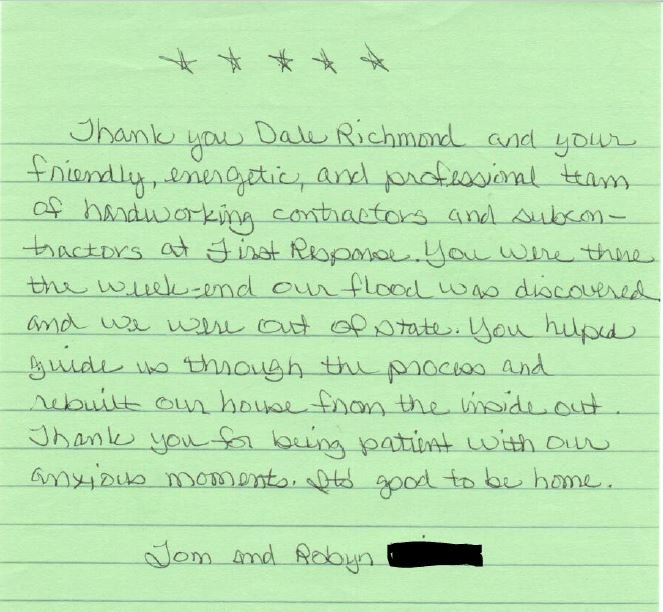 Thank you Dale Richmond and your
friendly, energetic, and professional team
of hardworking contractors and subcon-
tractors at First Response. You were there
the week-end our flood was discovered
and we were out of state. You helped
guide us through the process and
rebuilt our house from the inside out.
Thank you for being patient with our
anxious moments. It's good to be home.
Tom and Robyn